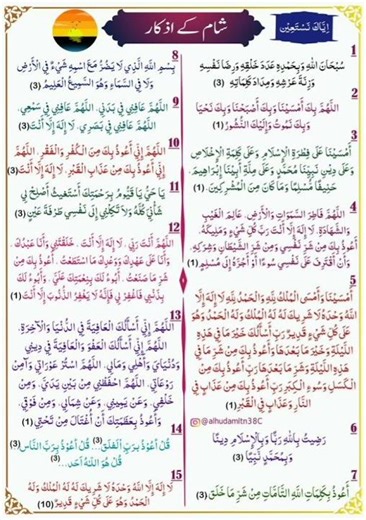 شام کے اذکار
اِیَّاکَ نَسْتَعِیْن
1
سُبْحَانَ اللهِ وَبِحَمْدِهِ عَدَدَ خَلْقِهِ وَرِضَا نَفْسِهِ
وَزِنَةَ عَرْشِهِ وَمِدَادَ كَلِمَاتِهِ (3)
2
اللَّهُمَّ بِكَ أَمْسَيْنَا وَبِكَ أَصْبَحْنَا وَبِكَ نَحْيَا
وَبِكَ نَمُوتُ وَإِلَيْكَ النُّشُورُ (1)
3
أَمْسَيْنَا عَلَى فِطْرَةِ الْإِسْلَامِ وَعَلَى كَلِمَةِ الْإِخْلَاصِ
وَعَلَى دِينِ نَبِيِّنَا مُحَمَّدٍ وَعَلَى مِلَّةِ أَبِينَا إِبْرَاهِيمَ
حَنِيفًا مُسْلِمًا وَمَا كَانَ مِنَ الْمُشْرِكِينَ (1)
4
اللَّهُمَّ فَاطِرَ السَّمَوَاتِ وَالْأَرْضِ، عَالِمَ الْغَيْبِ
وَالشَّهَادَةِ، لَا إِلَهَ إِلَّا أَنْتَ رَبَّ كُلِّ شَيْءٍ وَمَلِيكَهُ،
أَعُوذُ بِكَ مِنْ شَرِّ نَفْسِي وَمِنْ شَرِّ الشَّيْطَانِ وَشِرْكِهِ،
وَأَنْ أَقْتَرِفَ عَلَى نَفْسِي سُوءًا أَوْ أَجُرَّهُ إِلَى مُسْلِمٍ (1)
5
أَمْسَيْنَا وَأَمْسَى الْمُلْكُ لِلَّهِ وَالْحَمْدُ لِلَّهِ لَا إِلَهَ إِلَّا
اللهُ وَحْدَهُ لَا شَرِيكَ لَهُ لَهُ الْمُلْكُ وَلَهُ الْحَمْدُ وَهُوَ
عَلَى كُلِّ شَيْءٍ قَدِيرٌ رَبِّ أَسْأَلُكَ خَيْرَ مَا فِي هَذِهِ
اللَّيْلَةِ وَخَيْرَ مَا بَعْدَهَا وَأَعُوذُ بِكَ مِنْ شَرِّ مَا فِي
هَذِهِ اللَّيْلَةِ وَشَرِّ مَا بَعْدَهَا رَبِّ أَعُوذُ بِكَ مِنَ
الْكَسَلِ وَسُوءِ الْكِبَرِ رَبِّ أَعُوذُ بِكَ مِنْ عَذَابٍ فِي
النَّارِ وَعَذَابٍ فِي الْقَبْرِ (1)
@alhudamltn38C
6
رَضِيتُ بِاللهِ رَبًّا وَبِالْإِسْلَامِ دِينًا
وَبِمُحَمَّدٍ نَبِيًّا (3)
7
أَعُوذُ بِكَلِمَاتِ اللهِ التَّامَّاتِ مِنْ شَرِّ مَا خَلَقَ (3)
8
بِسْمِ اللهِ الَّذِي لَا يَضُرُّ مَعَ اسْمِهِ شَيْءٌ فِي الْأَرْضِ
وَلَا فِي السَّمَاءِ وَهُوَ السَّمِيعُ الْعَلِيمُ (3)
9
اللَّهُمَّ عَافِنِي فِي بَدَنِي، اللَّهُمَّ عَافِنِي فِي سَمْعِي،
اللَّهُمَّ عَافِنِي فِي بَصَرِي، لَا إِلَهَ إِلَّا أَنْتَ (3)
10
اللَّهُمَّ إِنِّي أَعُوذُ بِكَ مِنَ الْكُفْرِ وَالْفَقْرِ، اللَّهُمَّ
إِنِّي أَعُوذُ بِكَ مِنْ عَذَابِ الْقَبْرِ، لَا إِلَهَ إِلَّا أَنْتَ (3)
11
يَا حَيُّ يَا قَيُّومُ بِرَحْمَتِكَ أَسْتَغِيثُ أَصْلِحْ لِي
شَأْنِي كُلَّهُ وَلَا تَكِلْنِي إِلَى نَفْسِي طَرْفَةَ عَيْنٍ (3)
12
اللَّهُمَّ أَنْتَ رَبِّي، لَا إِلَهَ إِلَّا أَنْتَ، خَلَقْتَنِي وَأَنَا عَبْدُكَ،
وَأَنَا عَلَى عَهْدِكَ وَوَعْدِكَ مَا اسْتَطَعْتُ، أَعُوذُ بِكَ مِنْ
شَرِّ مَا صَنَعْتُ، أَبُوءُ لَكَ بِنِعْمَتِكَ عَلَيَّ، وَأَبُوءُ لَكَ
بِذَنْبِي فَاغْفِرْ لِي فَإِنَّهُ لَا يَغْفِرُ الذُّنُوبَ إِلَّا أَنْتَ (1)
13
اللَّهُمَّ إِنِّي أَسْأَلُكَ الْعَافِيَةَ فِي الدُّنْيَا وَالْآخِرَةِ،
اللَّهُمَّ إِنِّي أَسْأَلُكَ الْعَفْوَ وَالْعَافِيَةَ فِي دِينِي
وَدُنْيَايَ وَأَهْلِي وَمَالِي، اللَّهُمَّ اسْتُرْ عَوْرَاتِي وَآمِنْ
رَوْعَاتِي، اللَّهُمَّ احْفَظْنِي مِنْ بَيْنِ يَدَيَّ، وَمِنْ
خَلْفِي، وَعَنْ يَمِينِي، وَعَنْ شِمَالِي، وَمِنْ فَوْقِي،
وَأَعُوذُ بِعَظَمَتِكَ أَنْ أُغْتَالَ مِنْ تَحْتِي (1)
14
قُلْ أَعُوذُ بِرَبِّ الْفَلَقِ... (3) قُلْ أَعُوذُ بِرَبِّ النَّاسِ (3)
قُلْ هُوَ اللهُ أَحَد... (3)
15
لَا إِلَهَ إِلَّا اللهُ وَحْدَهُ لَا شَرِيكَ لَهُ لَهُ الْمُلْكُ وَلَهُ
الْحَمْدُ وَهُوَ عَلَى كُلِّ شَيْءٍ قَدِيرٌ (10)